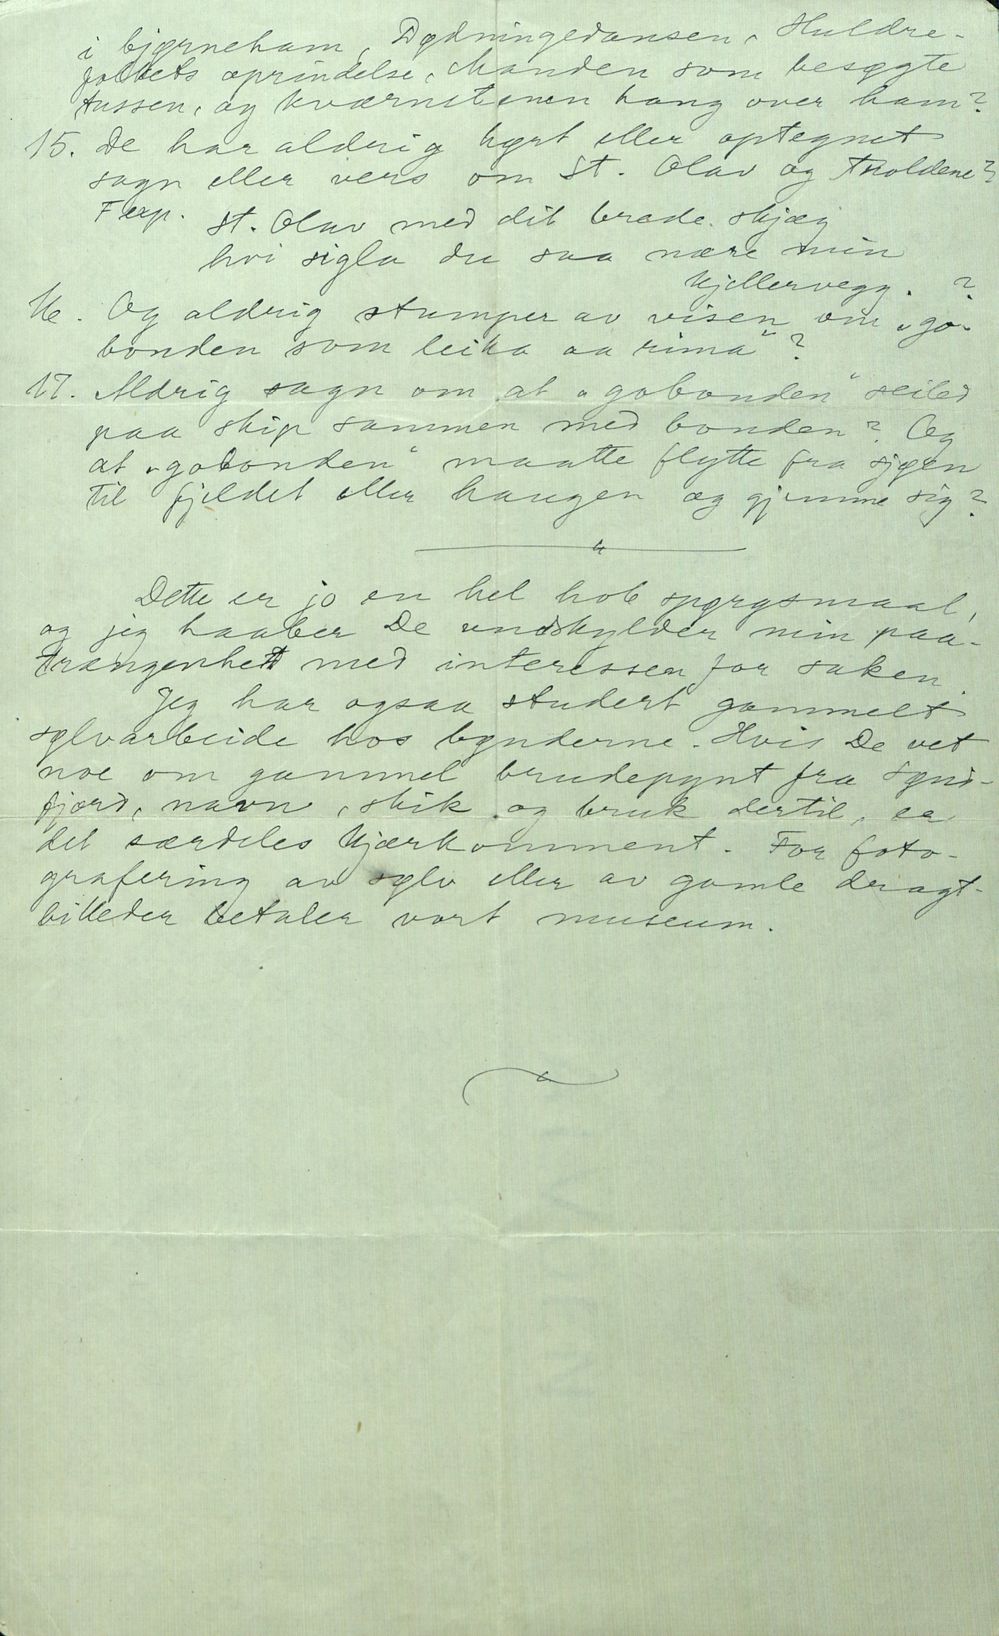 i bjørneham, Dødningedansen, Huldre-
folkets oprindelse, Manden som besøgte
tussen, og kværnstenen hang over ham?
15. De har aldrig hørt eller optegnet
sagn eller vers om St. Olav og Troldene?
F. exp. St. Olav med dit brede skjæg
hvi sigla du saa nære min
kjellervegg. ?
16. Og aldrig stumper av visen om „go-
bonden som leika aa rima"?
17. Aldrig sagn om at „gobonden" seiled
paa skip sammen med bonden? Og
at „gobonden" maatte flytte fra sjøen
til fjeldet eller haugen og gjemme sig?
Dette er jo en hel hob spørgsmaal,
og jeg haaber De undskylder min paa-
trængenhet med interessen for saken.
Jeg har ogsaa studert gammelt
sølvarbeide hos bønderne. Hvis De vet
noe om gammel brudepynt fra Sønd-
fjord, navn, skik og bruk dertil, er
det særdeles kjærkomment. For foto-
grafering av sølv eller av gamle dragt-
billeder betaler vort museum.